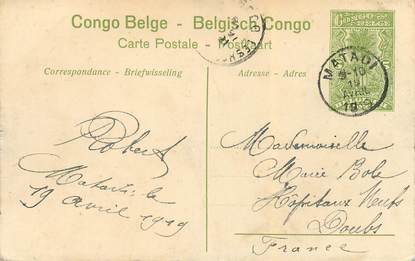 Congo Belge - Belgisch Congo
Carte Postale - Postkaart
Correspondance - Briefwisseling
Adresse - Adres
CONGO
BELGE
MATADI
9-10
19
AVRIL
Robert
Matadi, le
19 avril 1919
Mademoiselle
Marie Bole
Hôpitaux Neufs
Doubs
France